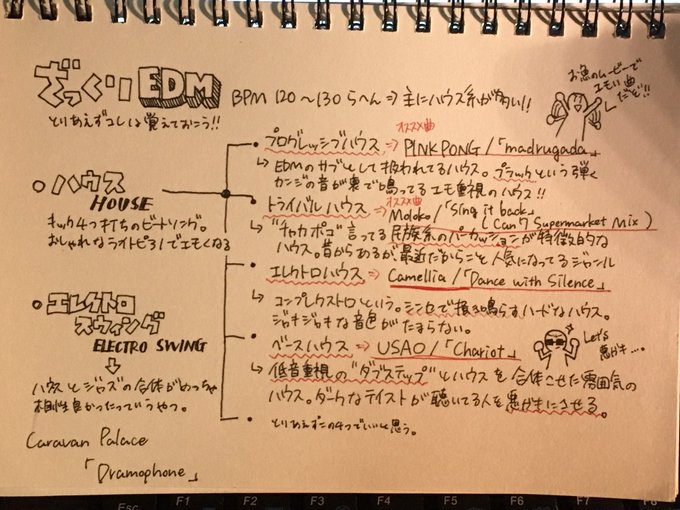 ざっくり EDM BPM 120～130らへん⇒主にハウス系が多い!!
とりあえずコレは覚えておこう!!
お魚のムービーで
エモい曲
だぞ!!
・ハウス
HOUSE
キック4つ打ちのビートソング。
おしゃれなライトピろいでエモくなる
・エレクトロ
スウィング
ELECTRO SWING
ハウスとジャズの合体がめっちゃ
相性良かったってうやつ。
Caravan Palace
「Dramophone」
オススメ曲
・プログレッシブハウス ⇒ PINK PONG /「madrugada」
↳ EDMのサブとして扱われてるハウス。プラックという弾く
カンジの音が裏で鳴ってるエモ重視のハウス!!
オススメ曲
・トライバルハウス ⇒ Moloko /「Sing it back」
(Can 7 Supermarket Mix)
↳ "チャカポコ"言ってる民族系のパーカッションが特徴的な
ハウス。昔からあるが、最近だからこそ人気になってるジャンル
・エレクトロハウス ⇒ Camellia /「Dance with Silence」
↳ コンプレクストロという。シンセで掻き鳴らすハードなハウス。
ジャキジャキな音色がたまらない。
・ベースハウス ⇒ USAO /「Chariot」
↳ 低音重視の"ダブステップ"とハウスを合体させた雰囲気の
ハウス。ダークなテイストが聴いてる人を悪ガキにさせる。
Let's
悪ガキ…。
・とりあえずこの4つでいいと思う。
Esc F1 F2 F3 F4 F5 F6 F7 F8